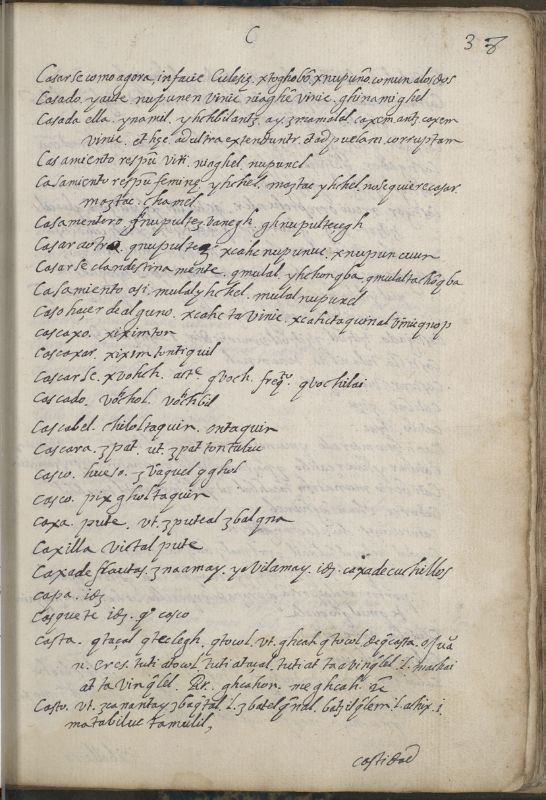 C
38
Casarse como agora, in facie Eclesię. xtoghobô, xnupunô, comun alos dos
Casado. yaute nupunen vinic niaghê vinic. ghinamighel
Casada ella. ynamil. yhchbilantz. ay. ʒnamalal. caxem antz. caxem
vinic. et hęc. ad ultra extenduntr. et ad puelam corruptam
Casamiento respũ viri. niaghel nupunel
Casamiento respũ feminę. yhchel. maztae yhchel. nose quiere casar
maztae. chamel
Casamentero. ghnupultezvanegh. ghnupulteegh
Casar aotro. qnupultez xcahcnupunuc. xnupun cuun
Casarse clandestinamente. qmulal. yhchonqba. qmulaltachôqba
Casamiento asi. mulalyhchel. mulal nupunel
Caso hazer de alguno. xcahc ta vinic. xcahctaquinal vinic qnop
cascaxo. xiximton
cascaxar. xiximtontiquil
Cascarse. xvohch. aste qvoch. qvochilai
Cascado. vochol. vochbil
Cascabel. chiloltaquin. ontaquin
Cascara. ʒpat. vt. ʒpat tontaluc
Casco. hueso. ʒvaquel qghol
Casco. pix gholtaquin
Caxa. pute. vt. ʒputeal ʒbalqna
Caxilla victal pute
Caxa de flautas. ʒnaamay. yavilamay. idʒ. caxa de cuchillos
capa. idʒ
Casquete idʒ. qº casco
Casta. qtaçal qteclegh. qtocol. vt. ghcah qtocol. de q̃ casta.
n. eres. tuti atocol. tuti atacal. tuti at ta avinq̃lel. l. machai
at ta vinq̃lel. Rt. ghcahon. meghcah.
Casto. vt. ʒcanantay ʒbaqtal. l. ʒbatel q̃nal. batzilq̃lem. l. achix. i.
matabiluc tamulil,
castidad